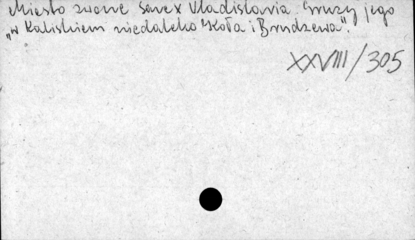 Miasto zwane Senex Vladislavia Gruzy jego
„w Kaliskiem niedaleko Koła i Brudzewa".
XXVIII/305